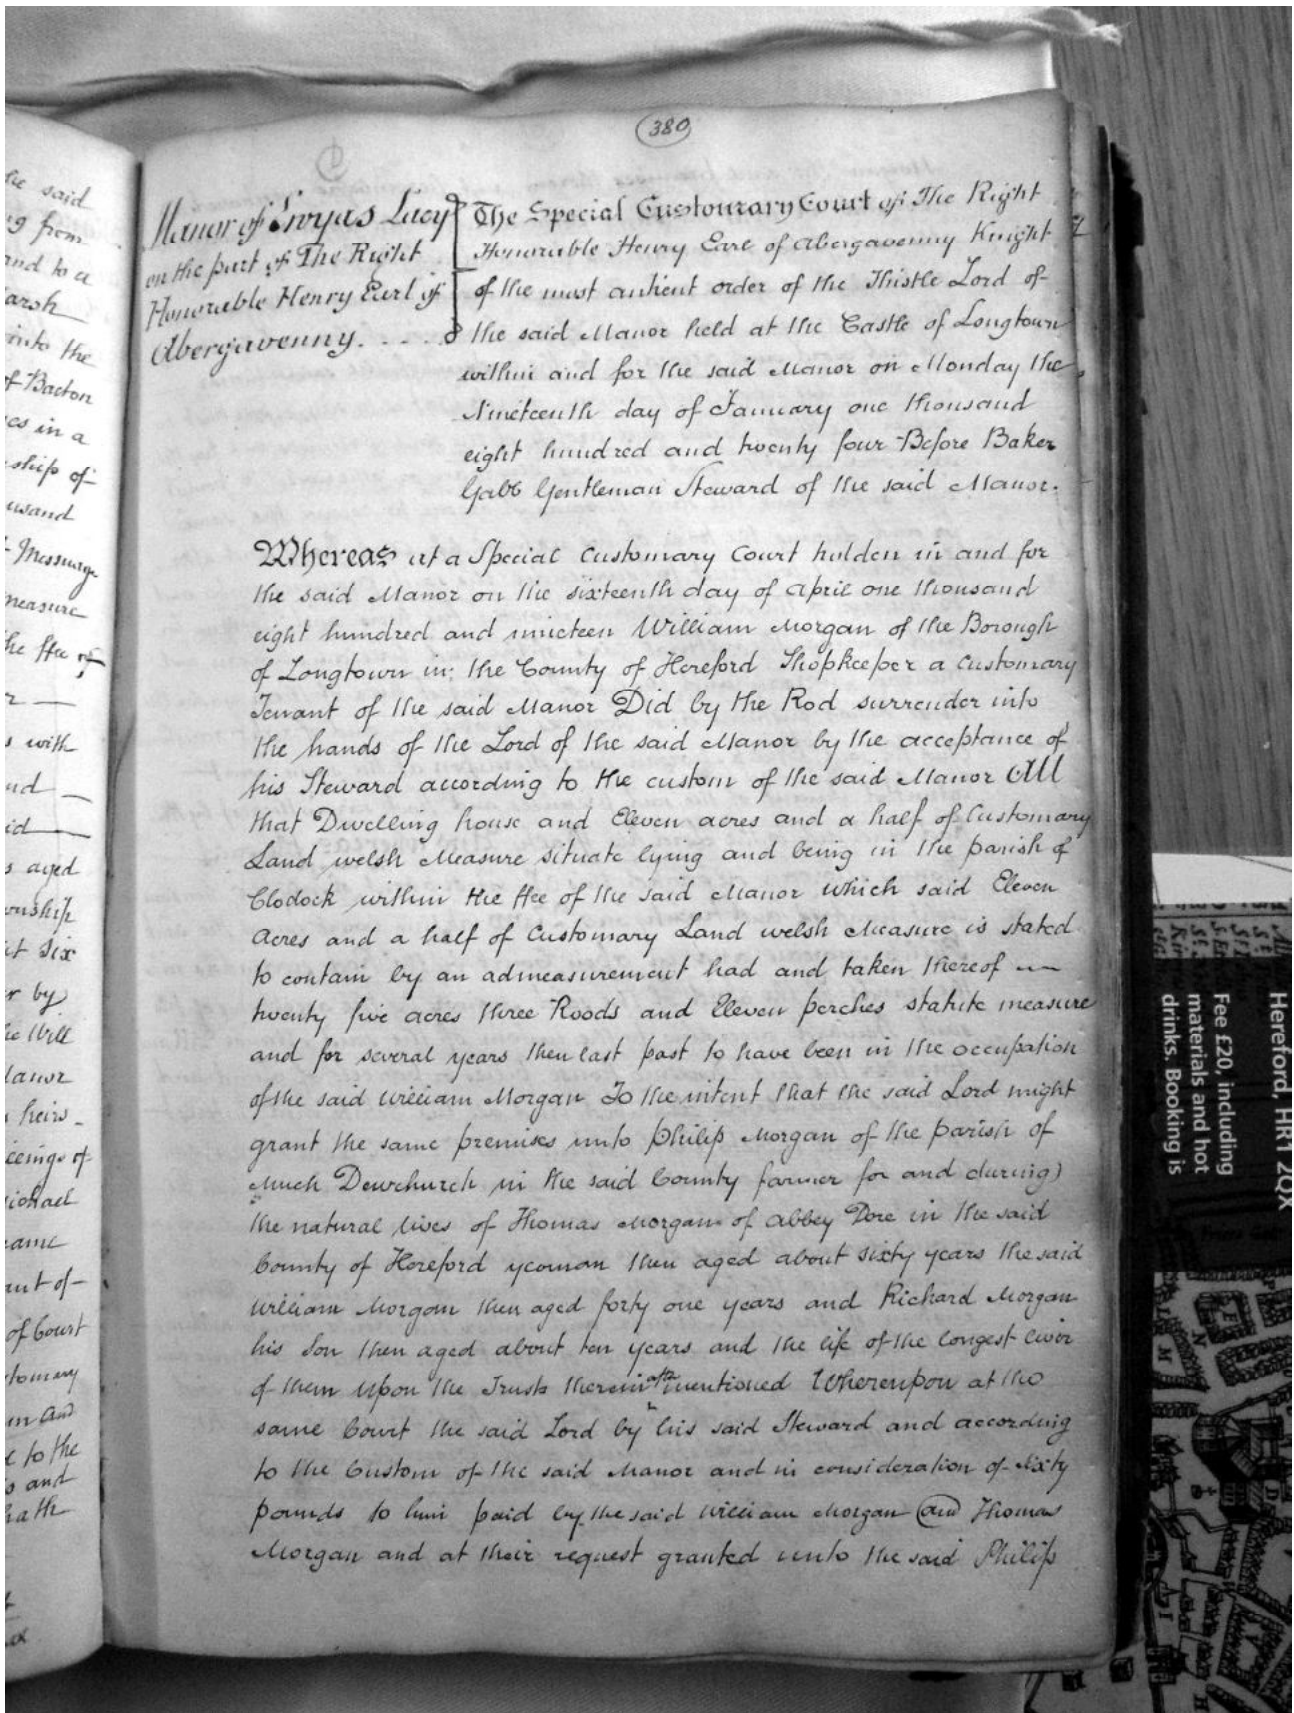 380
Manor of Ewyas Lacy
on the part of The Right
Honorable Henry Earl of
Abergavenny. - - - -
The Special Customary Court of The Right
Honorable Henry Earl of Abergavenny Knight
of the most antient order of the Thistle Lord of
the said Manor held at the Castle of Longtown
within and for the said Manor on Monday the
Nineteenth day of January one thousand
eight hundred and twenty four Before Baker
Gabb Gentleman Steward of the said Manor.
Whereas at a Special Customary Court holden in and for
the said Manor on the sixteenth day of April one thousand
eight hundred and nineteen William Morgan of the Borough
of Longtown in the County of Hereford Shopkeeper a Customary
Tenant of the said Manor Did by the Rod surrender into
the hands of the Lord of the said Manor by the acceptance of
his Steward according to the custom of the said Manor All
that Dwelling house and Eleven acres and a half of Customary
Land welsh Measure situate lying and being in the parish of
Clodock within the ffee of the said Manor which said Eleven
Acres and a half of Customary Land welsh Measure is stated
to contain by an admeasurement had and taken thereof
twenty five acres three Roods and Eleven perches statute measure
and for several years then last past to have been in the occupation
of the said William Morgan To the intent that the said Lord might
grant the same premises unto Philip Morgan of the parish of
Much Dewchurch in the said County farmer for and during
the natural lives of Thomas Morgan of Abbey Dore in the said
County of Hereford yeoman then aged about sixty years the said
William Morgan then aged forty one years and Richard Morgan
his Son then aged about ten years and the life of the longest liver
of them Upon the Trusts therein after mentioned Whereupon at the
same Court the said Lord by his said Steward and according
to the Custom of the said Manor and in consideration of Sixty
pounds to him paid by the said William Morgan and Thomas
Morgan and at their request granted unto the said Philip
he said
g from
and to a
into the
of Bacton
es in a
ship of
usand
Messuage
measure
he ffee of
s with
nd
id
s aged
wnship
ut Six
r by
he Will
Manor
heirs
of
ichael
ame
ant of
of Court
tomary
in and
to the
s and
hath
Hereford, HR1 2QX
Fee £20, including
materials and hot
drinks. Booking is